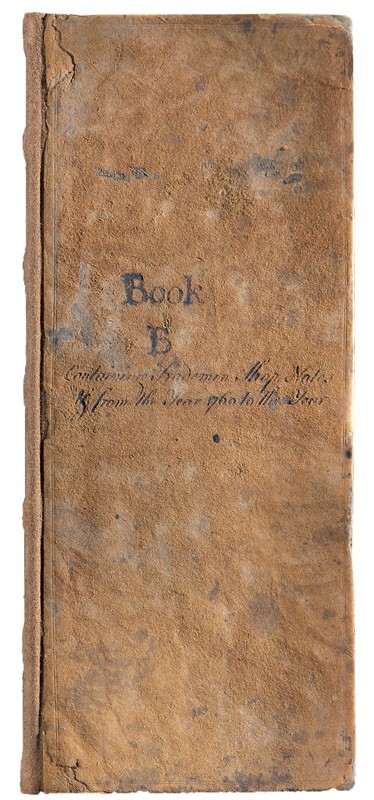 Book
B
Containing Tradesmen Shop Notes
&c from the Year 1760 to the Year